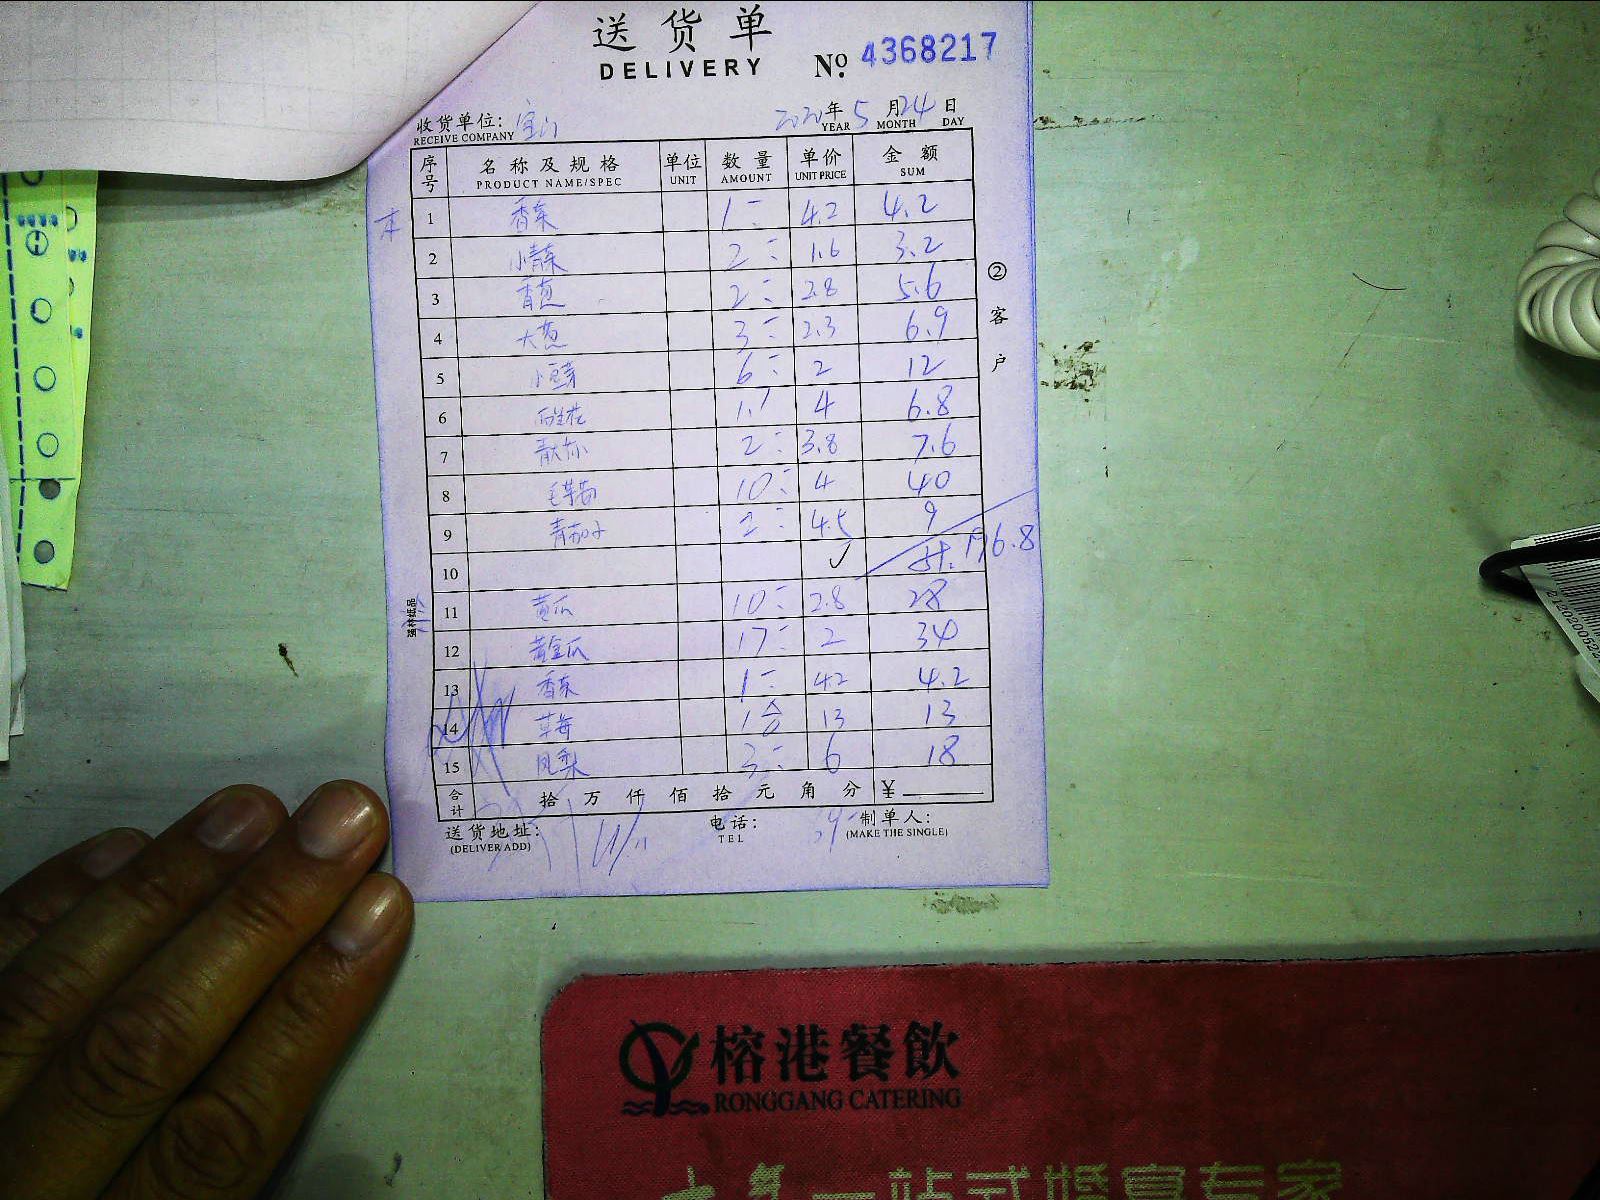 送货单
DELIVERY
№ 4368217
收货单位: 宝山 2020年5月24日
RECEIVE COMPANY YEAR MONTH DAY
序号 名称及规格 单位 数量 单价 金额
PRODUCT NAME/SPEC UNIT AMOUNT UNIT PRICE SUM
1 香菜 1 4.2 4.2
2 小青菜 2 1.6 3.2
3 香葱 2 2.8 5.6
4 大葱 3 2.3 6.9
5 小豆芽 6 2 12
6 4 6.8
7 2 3.8 7.6
8 10 4 40
9 青茄子 2 4.5 9
10 176.8
11 黄瓜 10 2.8 28
12 黄金瓜 17 2 34
13 香菜 1 4.2 4.2
14 草莓 1合 13 13
15 凤梨 3 6 18
合计 拾万仟佰拾元角分 ¥
送货地址: 电话: 制单人:
(DELIVER ADD) TEL (MAKE THE SINGLE)
②客户
榕港餐飲
RONGGANG CATERING
一站式婚宴专家